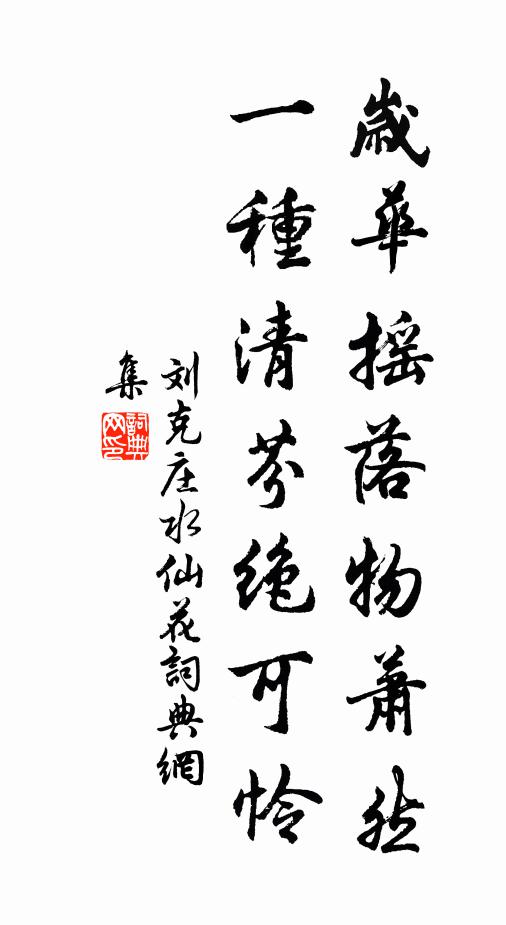 歲華摇落物蕭然
一種清芬绝可怜
刘克庄水仙花詞典網
集
詞典网印